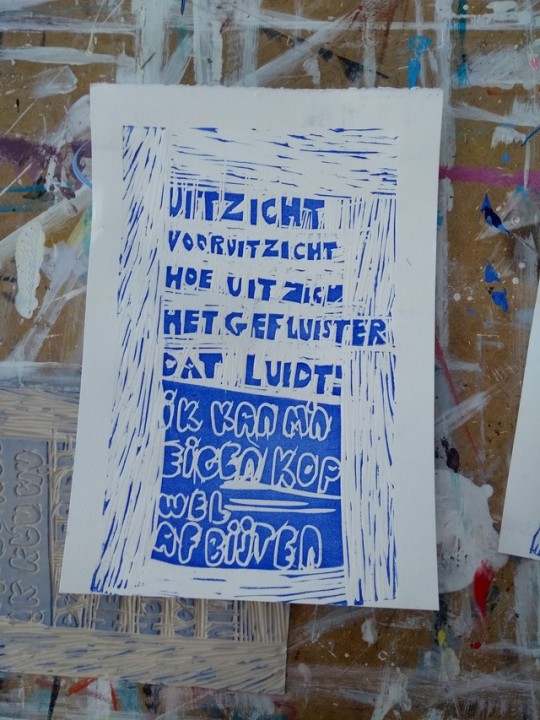 UITZICHT
VOORUITZICHT
HOE UIT ZICH
HET GEFLUISTER
DAT LUIDT:
iK KAN M'N
EiGEN KOP
WEL
AFBIJTEN